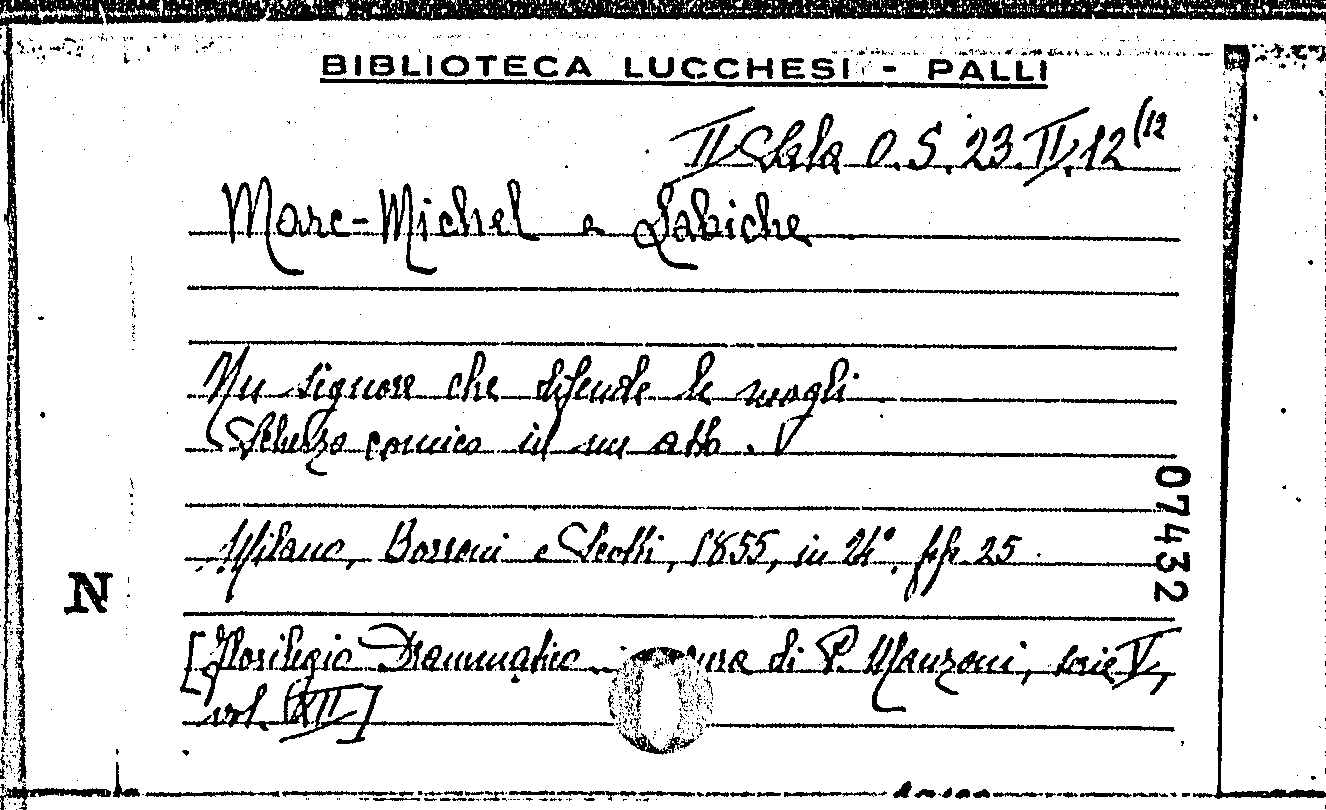 BIBLIOTECA LUCCHESI - PALLI
II Sala O. S. 23. II. 12 (12
Marc-Michel e Labiche
Un signore che difende le mogli
Scherzo comico in un atto.
Milano, Borroni e Scotti, 1855, in 24°. pp. 25
07432
N
[Florilegio Drammatico di P. Manzoni, serie V,
vol. XII]